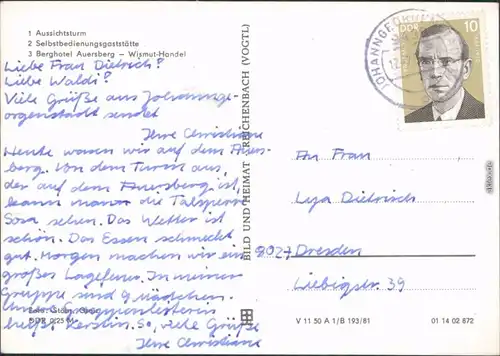 1 Aussichtsturm
2 Selbstbedienungsgaststätte
3 Berghotel Auersberg – Wismut-Handel
Liebe Frau Dietrich!
Liebe Waldi!
Viele Grüße aus Johannge-
orgenstadt sendet
Ihre Christiane
Heute waren wir auf dem Auers-
berg. Von dem Turm aus,
der auf dem Auersberg ist,
kann man die Talsperre
Sosa sehen. Das Wetter ist
schön. Das Essen schmeckt
gut. Morgen machen wir ein
großes Lagerfeuer. In meiner
Gruppe sind 9 Mädchen.
Unsere
heißt Kerstin. So, viele Grüße
Ihre Christiane
BILD UND HEIMAT REICHENBACH (VOGTL)
JOHANNGEORGEN
DDR 10
An Frau
Lya Dietrich
8027 Dresden
Liebigstr. 39
V 11 50 A 1/B 193/81
01 14 02 872